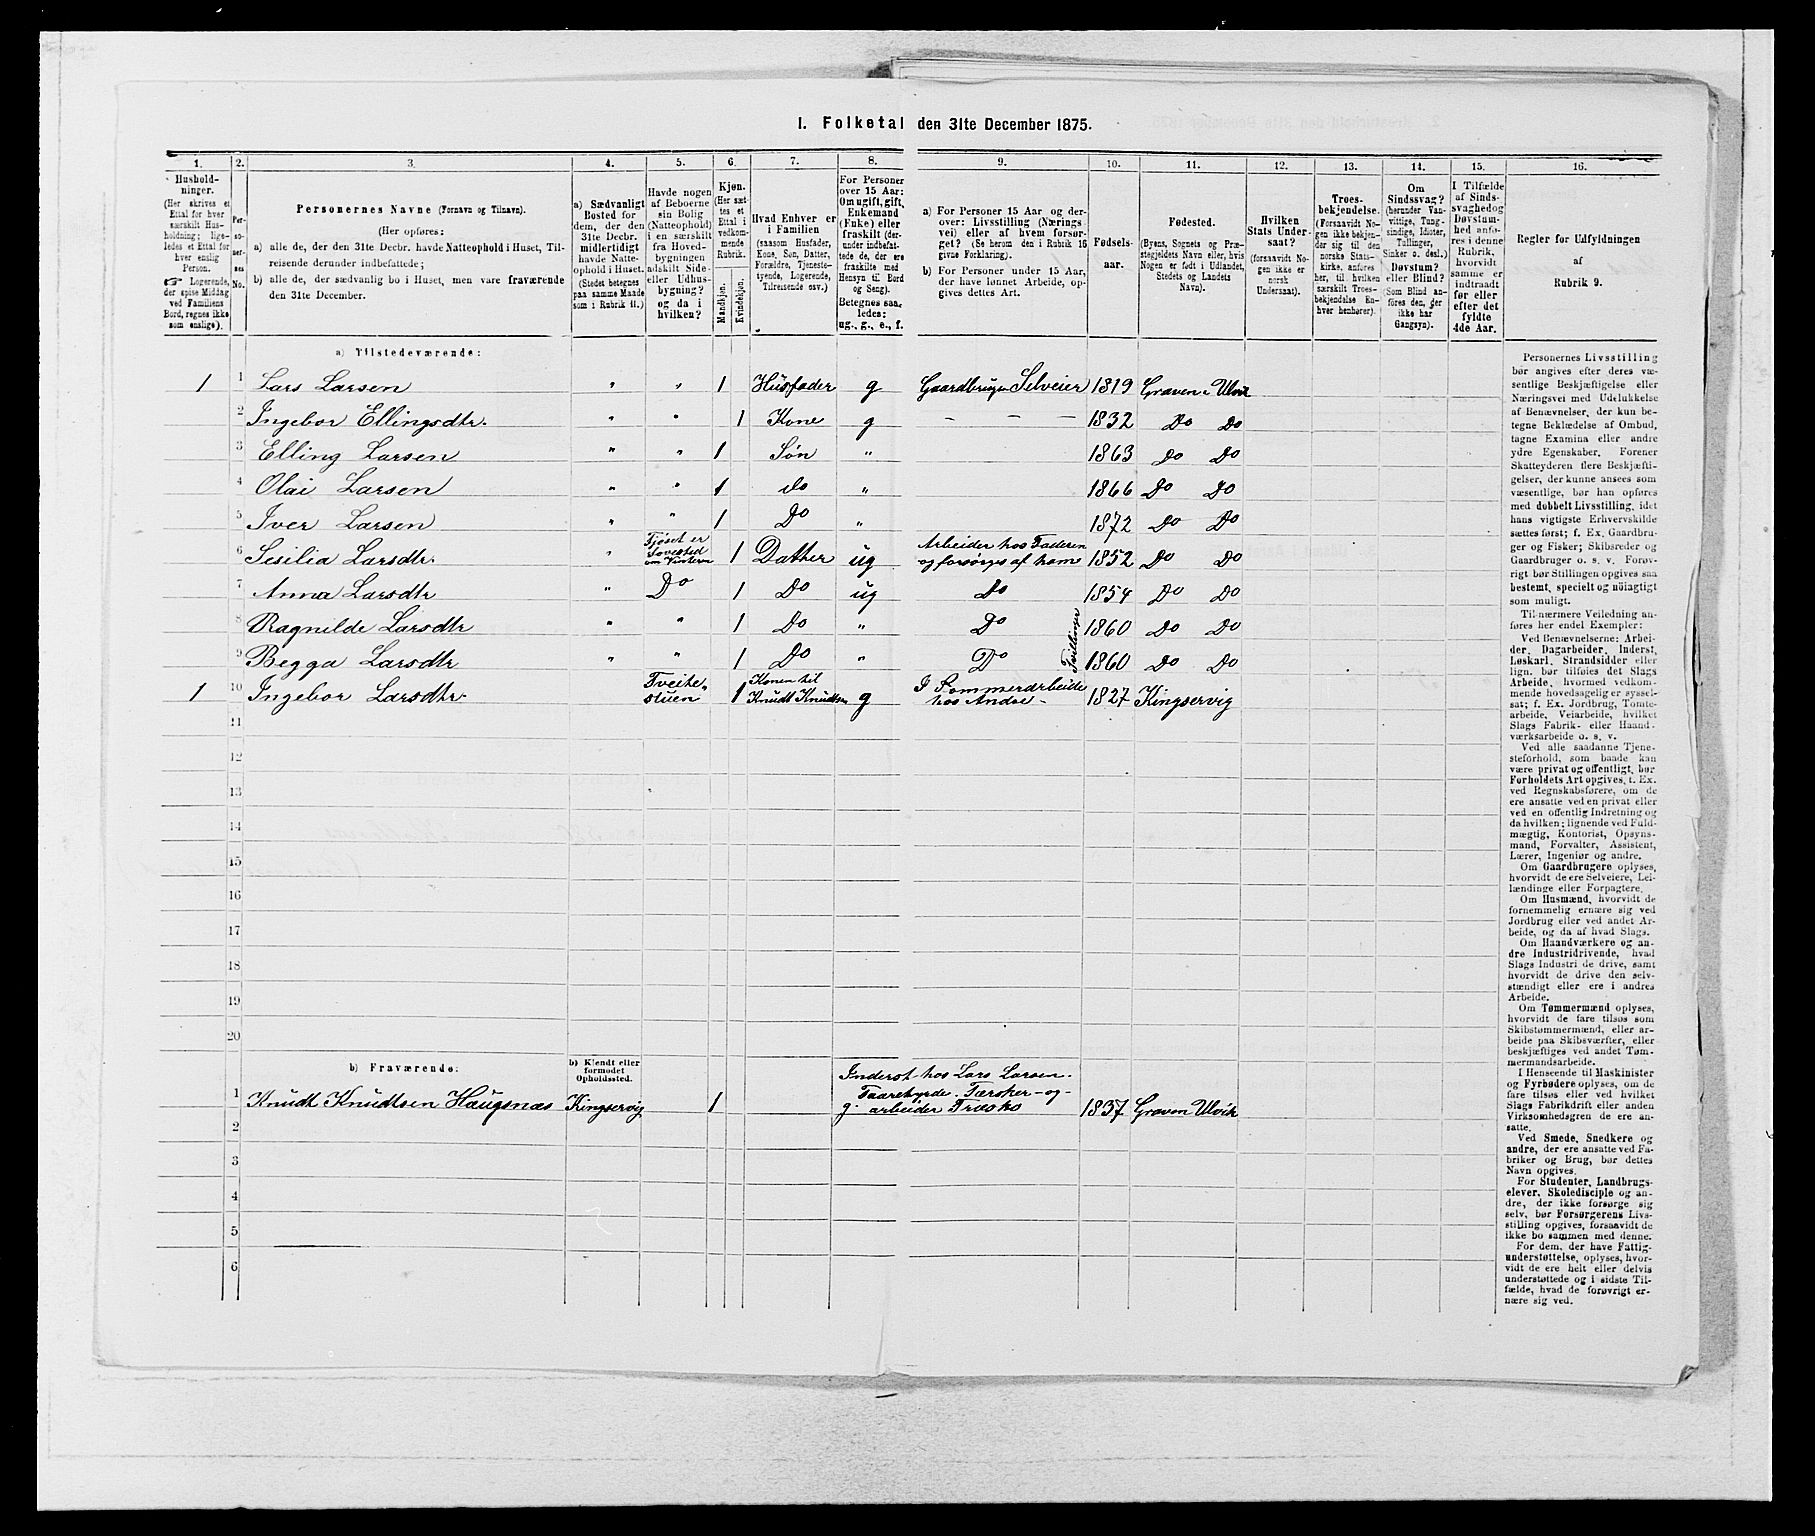 I. Folketal den 31te December 1875.
1. 2. 3. 4. 5. 6. 7. 8. 9. 10. 11. 12. 13. 14. 15. 16.
Husholdninger.
(Her skrives et
Ettal for hver
særskilt Husholdning;
ligeledes et Ettal for
hver enslig
Person.
☞ Logerende,
der spise Middag
ved Familiens
Bord, regnes ikke
som enslige).
Personernes No.
Personernes Navne (Fornavn og Tilnavn).
(Her opføres:
a) alle de, der den 31te Decbr. havde Natteophold i Huset, Tilreisende derunder indbefattede;
b) alle de, der sædvanlig bo i Huset, men vare fraværende
den 31te December.
a) Sædvanligt
Bosted for
dem, der den
31te Decbr.
midlertidigt
havde Natteophold i Huset.
(Stedet betegnes
paa samme Maade
som i Rubrik 11.)
Havde nogen
af Beboerne
sin Bolig
(Natteophold)
i en særskilt
fra Hovedbygningen
adskilt Side-
eller Udhusbygning?
og da i
hvilken?
Kjøn.
(Her sættes et
Ettal i
vedkommende
Rubrik.
Mandkjøn.
Kvindekjøn.
Hvad Enhver er
i Familien
(saasom Husfader,
Kone, Søn, Datter,
Forældre, Tjenestetyende, Logerende,
Tilreisende osv.)
For Personer
over 15 Aar:
Om ugift, gift,
Enkemand
(Enke) eller
fraskilt (derunder indbefattede de, der ere
fraskilte med
Hensyn til Bord
og Seng).
Betegnes saaledes:
ug., g., e., f.
a) For Personer 15 Aar og derover: Livsstilling (Næringsvei) eller af hvem forsørget? (Se herom den i Rubrik 16
givne Forklaring).
b) For Personer under 15 Aar,
der have lønnet Arbeide, opgives dettes Art.
Fødselsaar.
Fødested.
(Byens, Sognets og Præstegjeldets Navn eller, hvis
Nogen er født i Udlandet,
Stedets og Landets
Navn).
Hvilken
Stats Undersaat?
(forsaavidt Nogen ikke er
norsk
Undersaat).
Troesbekjendelse.
(Forsaavidt Nogen ikke bekjender sig til den
norske Statskirke, anføres
her, til hvilken
særskilt Troesbekjendelse Enhver henhører).
Om
Sindssvag?
(herunder Vanvittige, Tungsindige, Idioter,
Tullinger,
Sinker o. desl.)
Døvstum?
eller Blind?
(Som Blind anføres den, der
ikke har
Gangsyn).
I Tilfælde
af Sindssvaghed og
Døvstumhed anføres i denne
Rubrik,
hvorvidt
samme er
indtraadt
før eller
efter det
fyldte
4de Aar.
Regler for Udfyldningen
af
Rubrik 9.
a) Tilstedeværende:
1 1 Lars Larsen " " 1 Husfader g Gaardbruger Selveier 1819 Graven i Ulvik
2 Ingebor Ellingsdtr. " " 1 Kone g – – – 1832 Do Do
3 Elling Larsen " " 1 Søn " 1863 Do Do
4 Olai Larsen " " 1 do " 1866 Do Do
5 Iver Larsen " " 1 Do " 1872 Do Do
6 Sesilia Larsdtr. " Fjøset er Sovested om Vintern 1 Datter ug Arbeider hos Faderen og forsørges af ham 1852 Do Do
7 Anna Larsdtr " Do 1 Do ug Do 1854 Do Do
8 Ragnilde Larsdtr " " 1 Do " Do Tvillinger 1860 Do Do
9 Begga Larsdtr " " 1 Do " Do 1860 Do Do
1 10 Ingebor Larsdtr. Tveitestuen 1 Konen til Knudt Knudtsen g I Sommerarbeide hos Andre – 1827 Kingservig
11
12
13
14
15
16
17
18
19
20
b) Fraværende:
b) Kjendt eller
formodet
Opholdssted.
1 Knudt Knudtsen Haugsnæs Kingservig 1 g. Inderst hos Lars Larsen. Faarehyrde. Tærsker – og – arbeider Træsko 1837 Graven Ulvik
2
3
4
5
6
Personernes Livsstilling
bør angives efter deres væsentlige Beskjæftigelse eller
Næringsvei med Udelukkelse
af Benævnelser, der kun betegne Beklædelse af Ombud,
tagne Examina eller andre
ydre Egenskaber. Forener
Skatteyderen flere Beskjæftigelser, der kunne ansees som
væsentlige, bør han opføres
med dobbelt Livsstilling, idet
hans vigtigste Erhvervskilde
sættes først; f. Ex. Gaardbruger og Fisker; Skibsreder og
Gaardbruger o. s. v. Forøvrigt bør Stillingen opgives saa
bestemt, specielt og nöiagtigt
som muligt.
Til nærmere Veiledning anføres her endel Exempler:
Ved Benævnelserne: Arbeider, Dagarbeider, Inderst,
Løskarl, Strandsidder eller
lign. bør tilføies det Slags
Arbeide, hvormed vedkommende hovedsagelig er sysselsat; f. Ex. Jordbrug, Tomtearbeide, Veiarbeide, hvilket
Slags Fabrik- eller Haandværksarbeide o. s. v.
Ved alle saadanne Tjenesteforhold, som baade kan
være privat og offentligt, bør
Forholdets Art opgives, f. Ex.
ved Regnskabsførere, om de
ere ansatte ved en privat eller
ved en offentlig Indretning og
da hvilken; lignende ved Fuldmægtig, Kontorist, Opsynsmand, Forvalter, Assistent,
Lærer, Ingeniør og andre.
Om Gaardbrugere oplyses,
hvorvidt de ere Selveiere, Leilændinge eller Forpagtere.
Om Husmænd, hvorvidt de
fornemmelig ernære sig ved
Jordbrug eller ved andet Arbeide, og da af hvad Slags.
Om Haandværkere og andre Industridrivende, hvad
Slags Industri de drive, samt
hvorvidt de drive den selvstændigt eller ere i andres
Arbeide.
Om Tømmermænd oplyses,
hvorvidt de fare tilsøs som
Skibstømmermænd, eller arbeide paa Skibsværfter, eller
beskjæftiges ved andet Tømmermandsarbeide.
I Henseende til Maskinister
og Fyrbødere oplyses, om de
fare tilsøs eller ved hvilket
Slags Fabrikdrift eller anden
Virksomhedsgren de ere ansatte.
Ved Smede, Snedkere og
andre, der ere ansatte ved Fabriker og Brug, bør dettes
Navn opgives.
For Studenter, Landbrugselever, Skoledisciple og andre, der ikke forsørge sig
selv, bør Forsørgerens Livsstilling opgives, forsaavidt de
ikke bo sammen med denne.
For dem, der have Fattigunderstøttelse, oplyses, hvorvidt de ere helt eller delvis
understøttede og i sidste Tilfælde, hvad de forøvrigt ernære sig ved.